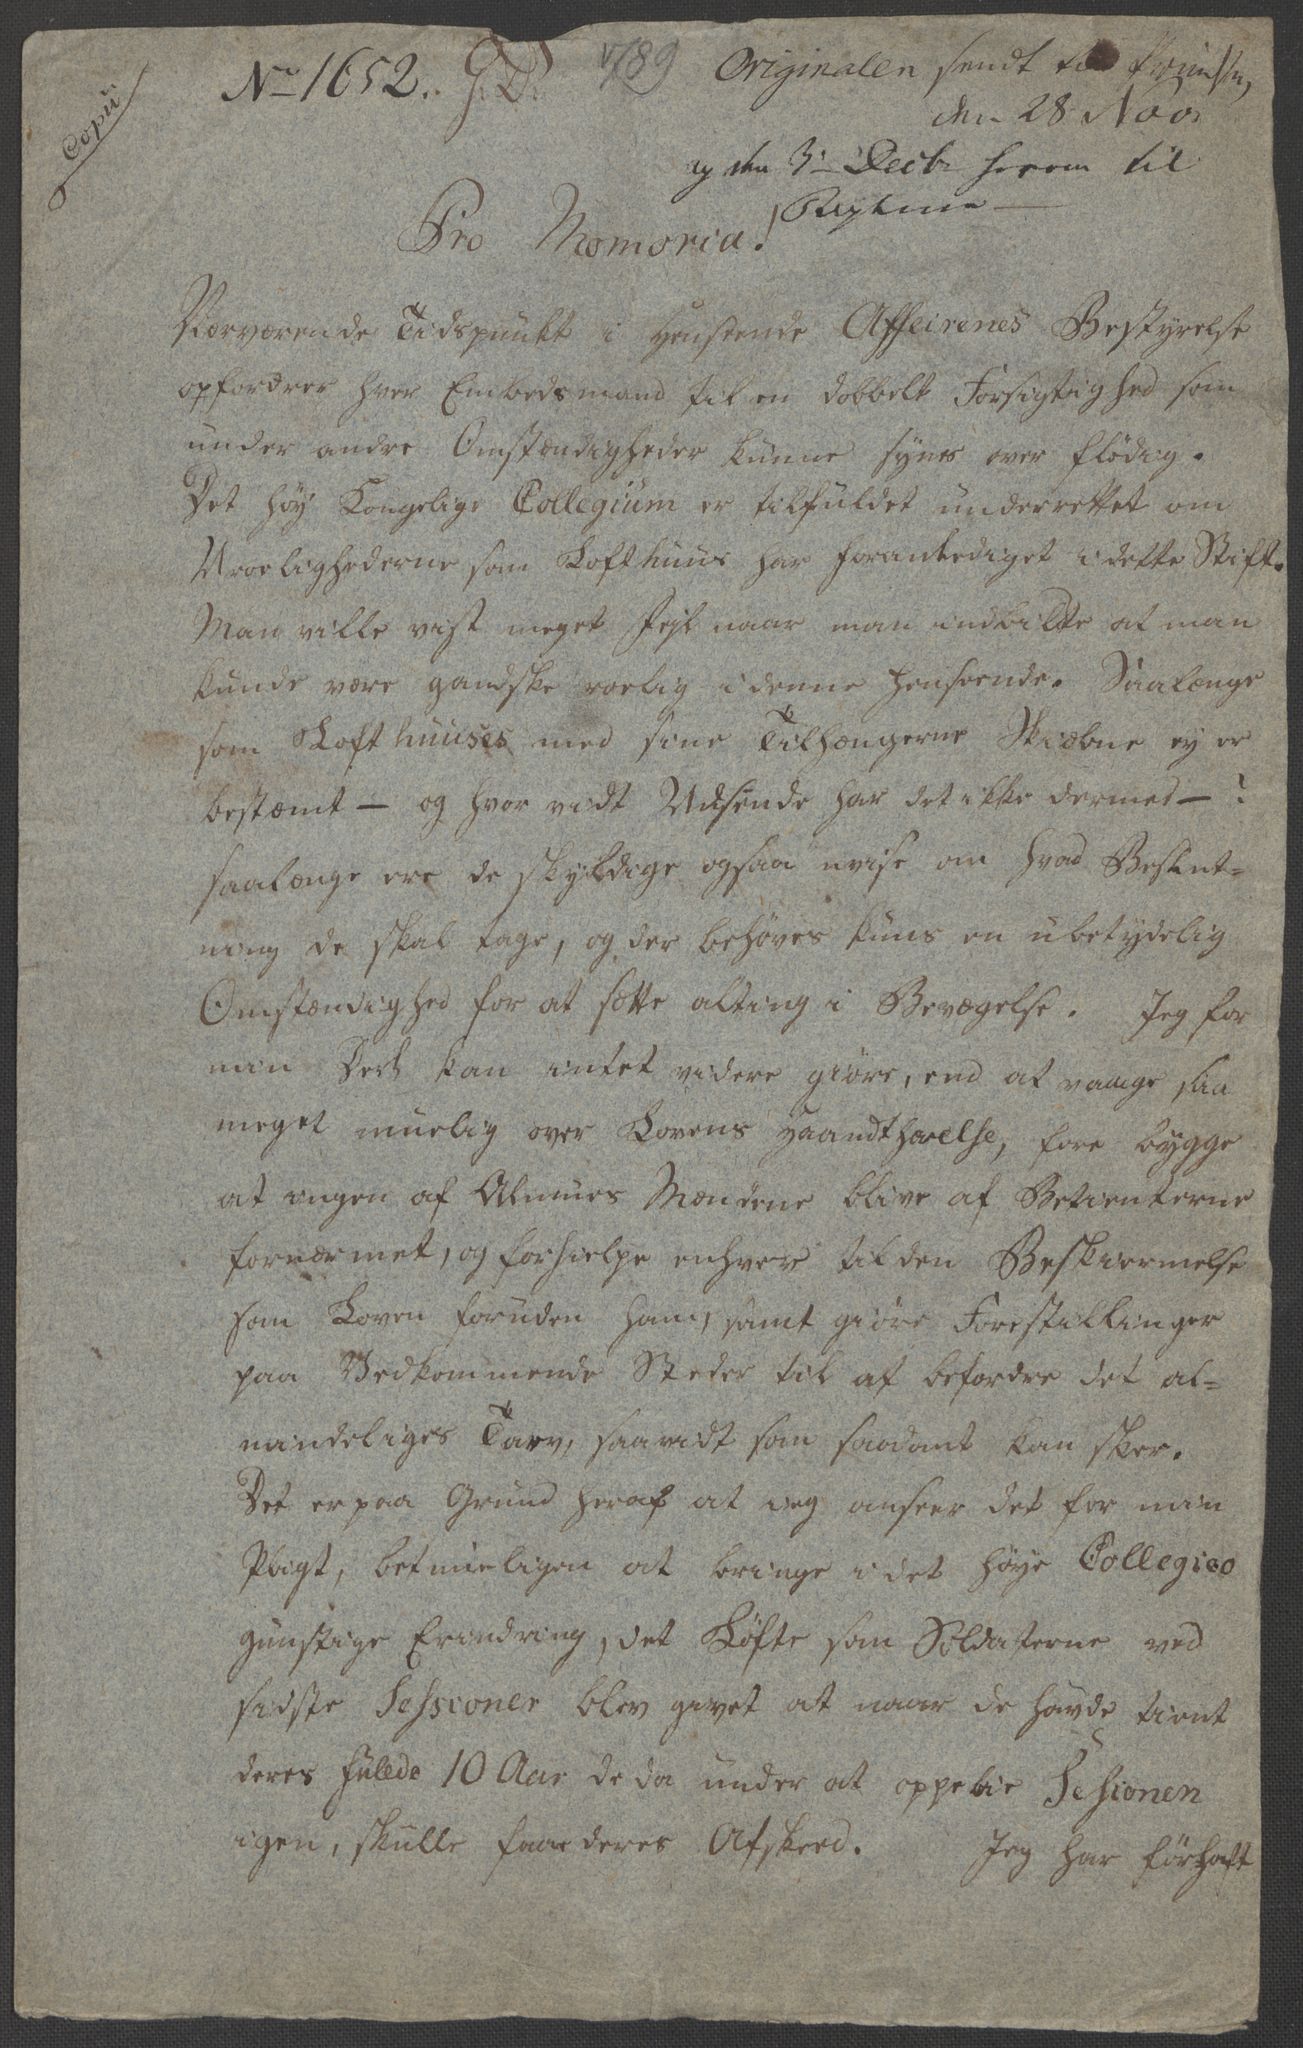 Copii
No 1652. G. D. 789 Originalen sendt til Printsen,
den 28 Nov
og den 3 Decbr herom til
Pro Memoria!
Nærværende Tidspunkt i Henseende Affeirenes Bestyrelse
opfordrer hver Embedsmand til en dobbelt Forsigtighed som
under andre Omstændigheder kunne synes over flödig.
Det höy Kongelige Collegium er tilfuldet underrettet om
Uroelighederne som Lofthuus har foranlediget i dette Stift.
Man ville vist meget fejl naar man indbildte at man
kunde være gandske roelig i denne Henseende. Saalænge
som Lofthuuses med sine Tilhængerne Skiæbne ey er
bestæmt - og hvor vidt Udseende har det ikke dermed - ?
saalænge ere de skyldige ogsaa uvise om hvad Beslut-
ning de skal tage, og der behöves kuns en ubetydelig
Omstændighed for at sette alting i Bevægelse. Jeg for
min Deel kan intet videre giöre, end at vaage saa
meget muelig over Lovens Haandthævelse, fore bygge
at ingen af Almues Mændene blive af Betienterne
fornærmet, og forhielpe enhver til den Beskiermelse
som Loven forunder ham, samt giöre Forestillinger
paa Vedkommende Steder til at befordre det al-
mindeliges Tarv, saavidt som saadant kan skee.
Det er paa Grund heraf at ieg anseer det for min
Pligt, betimeligen at bringe i det höye Collegiee
gunstige Erindring, det Löfte som Soldaterne ved
sidste Sessioner blev givet at naar de havde tient
deres fulde 10 Aar de da under at oppebie Sessionen
igen, skulle faae deres Afskeed. Jeg har förhaft